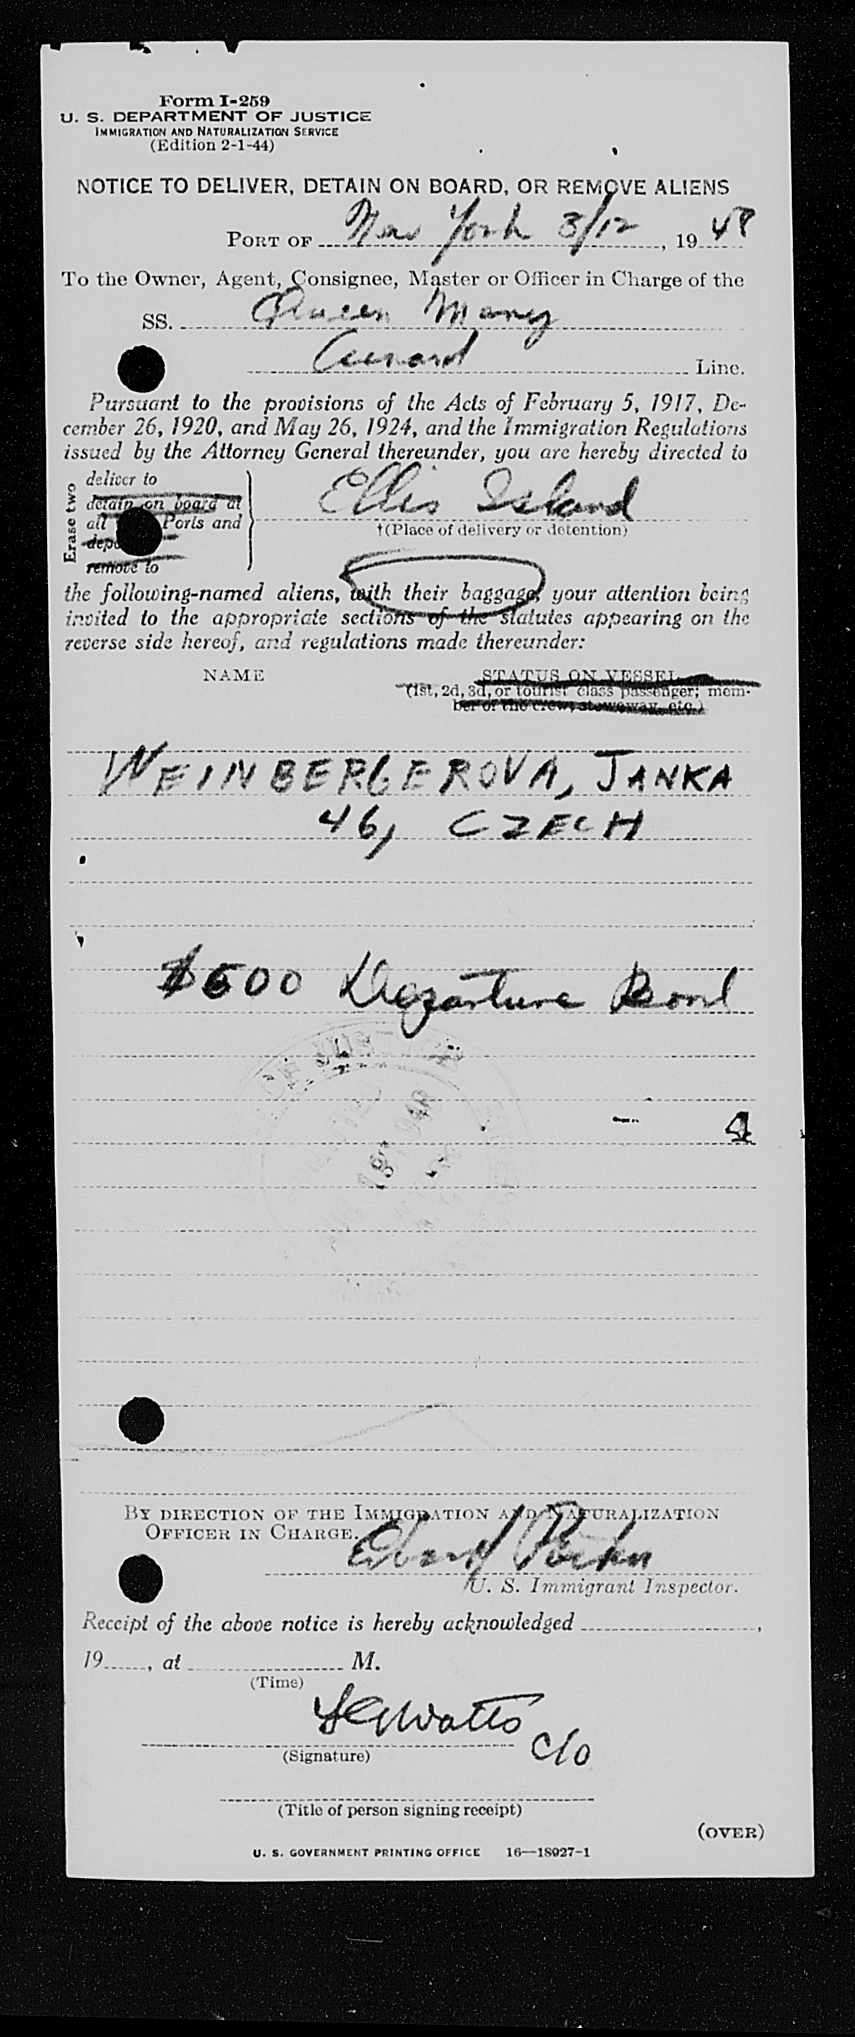 Form I-259
U. S. DEPARTMENT OF JUSTICE
IMMIGRATION AND NATURALIZATION SERVICE
(Edition 2-1-44)
NOTICE TO DELIVER, DETAIN ON BOARD, OR REMOVE ALIENS
PORT OF New York 3/12, 1948
To the Owner, Agent, Consignee, Master or Officer in Charge of the
SS. Queen Mary
Cunard Line.
Pursuant to the provisions of the Acts of February 5, 1917, De-
cember 26, 1920, and May 26, 1924, and the Immigration Regulations
issued by the Attorney General thereunder, you are hereby directed to
Erase two
deliver to
detain on board at
all Ports and
remove to
Ellis Island
†(Place of delivery or detention)
the following-named aliens, with their baggage, your attention being
invited to the appropriate sections of the statutes appearing on the
reverse side hereof, and regulations made thereunder:
NAME STATUS ON VESSEL
(1st, 2d, 3d, or tourist class passenger; mem-
ber of the crew, stowaway, etc.)
WEINBERGEROVA, JANKA
46, CZECH
$500 Departure Bond
4
BY DIRECTION OF THE IMMIGRATION AND NATURALIZATION
OFFICER IN CHARGE.
U. S. Immigrant Inspector.
Receipt of the above notice is hereby acknowledged ,
19 , at M.
(Time)
Watts
(Signature) c/o
(Title of person signing receipt)
(OVER)
U. S. GOVERNMENT PRINTING OFFICE 16—18927-1